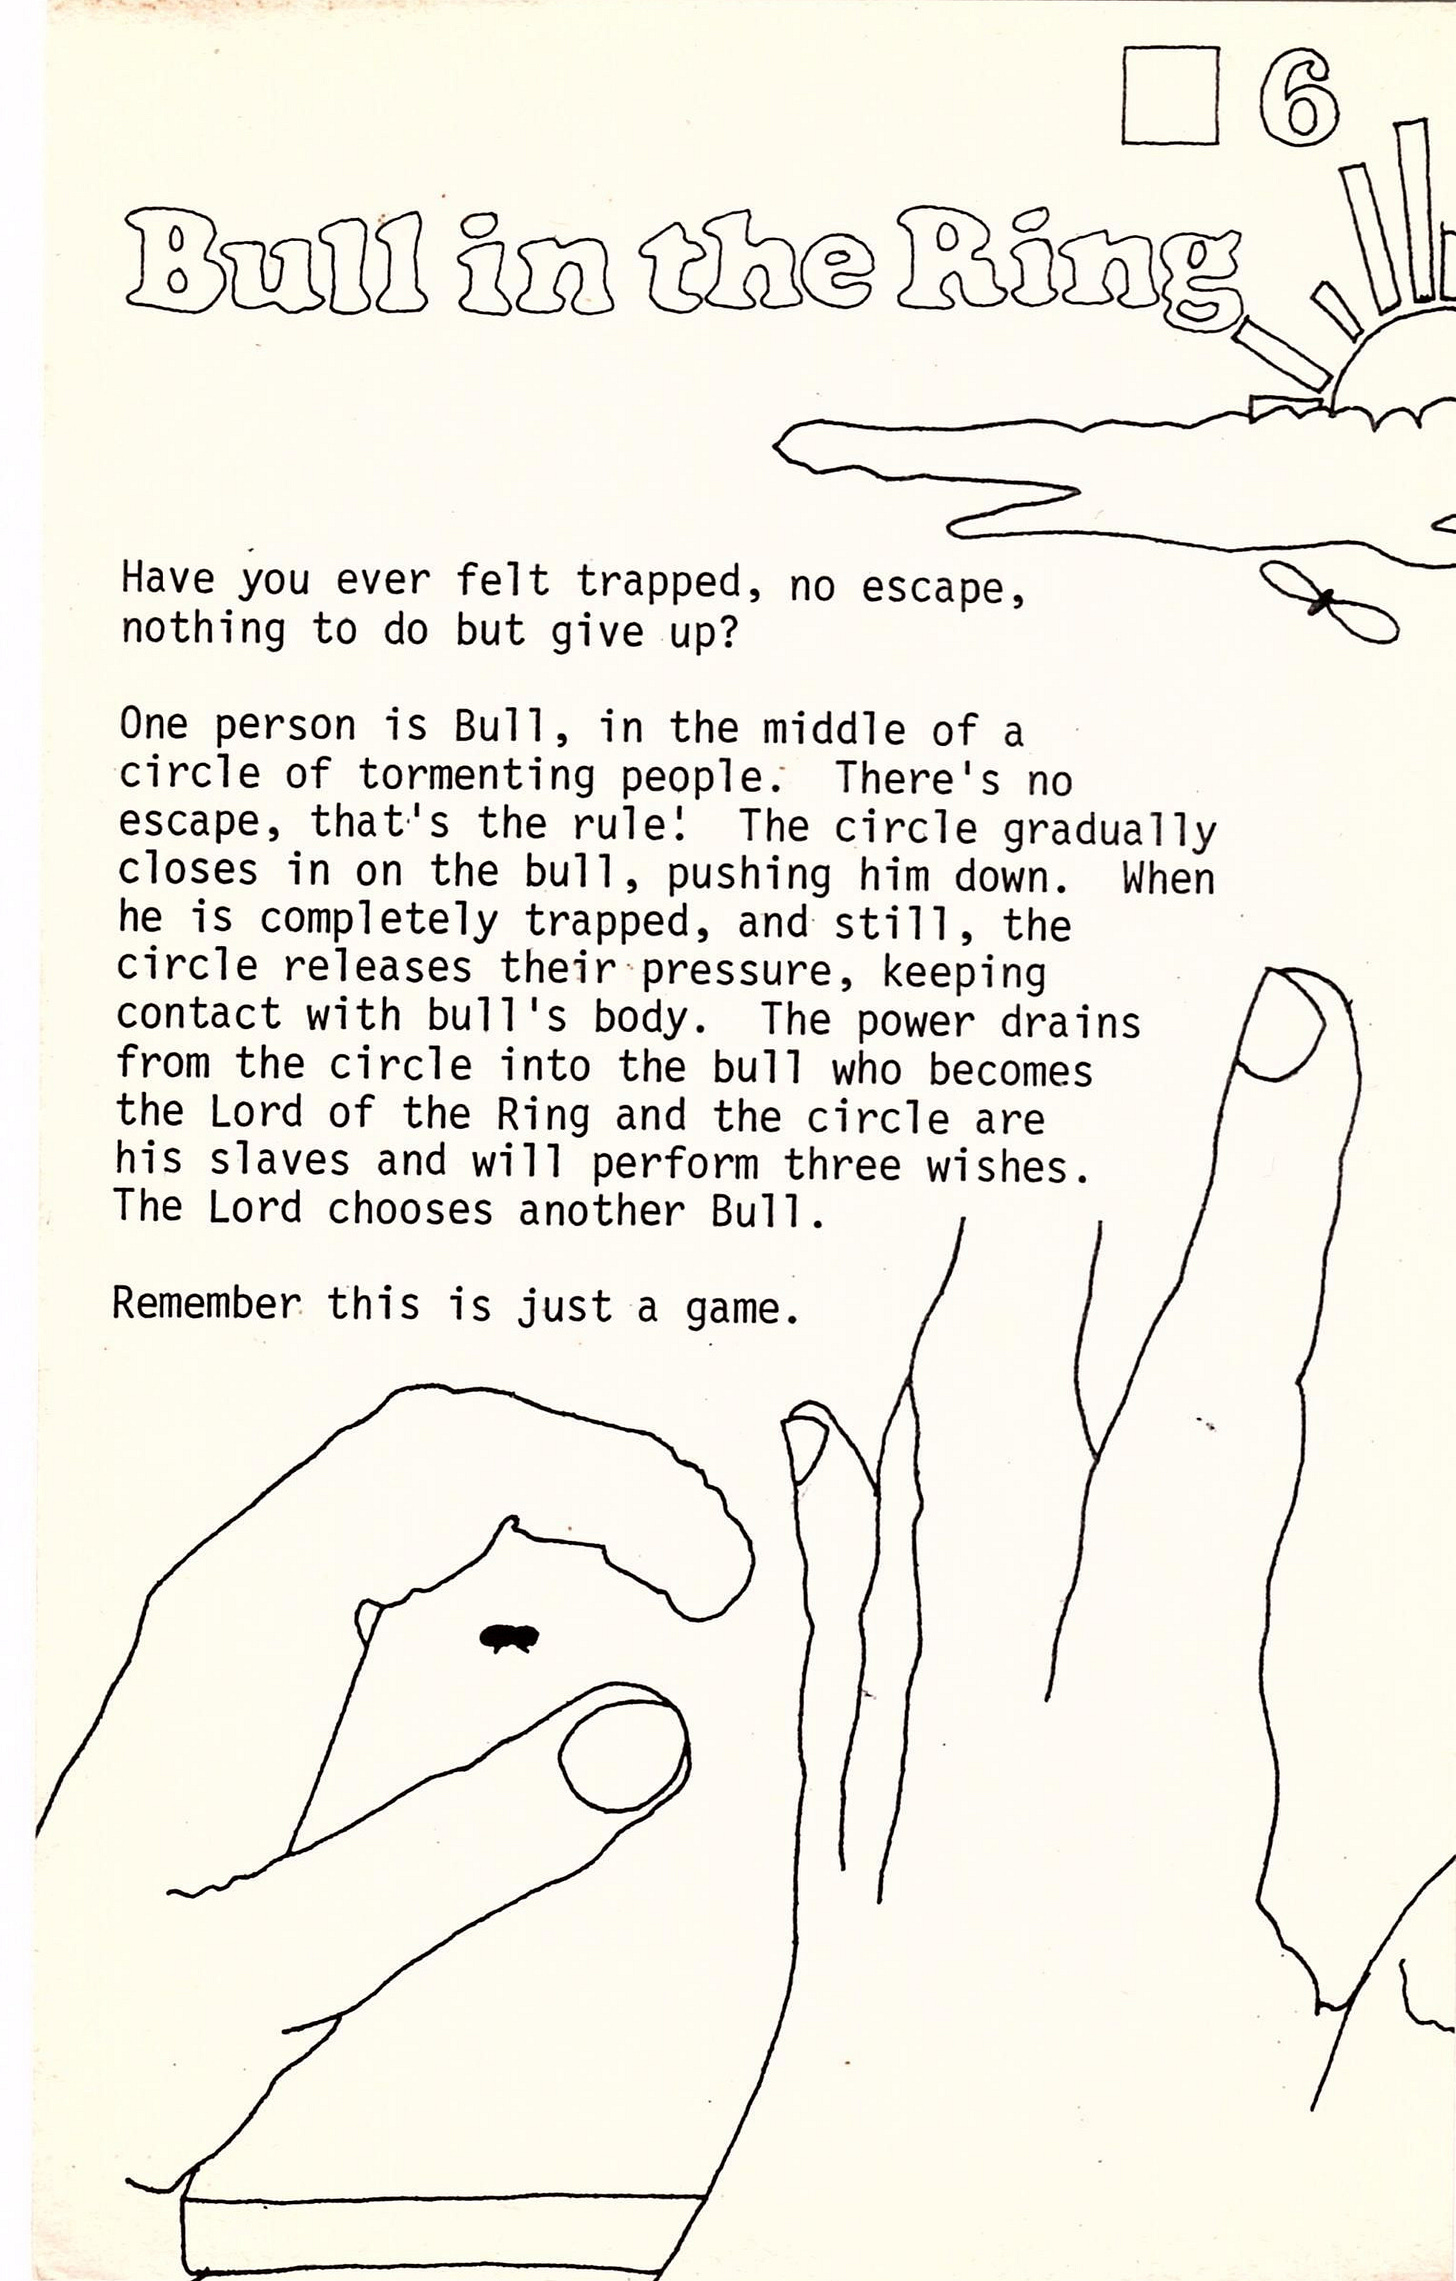 6
Bull in the Ring
Have you ever felt trapped, no escape,
nothing to do but give up?
One person is Bull, in the middle of a
circle of tormenting people.  There's no
escape, that's the rule!  The circle gradually
closes in on the bull, pushing him down.  When
he is completely trapped, and still, the
circle releases their pressure, keeping
contact with bull's body.  The power drains
from the circle into the bull who becomes
the Lord of the Ring and the circle are
his slaves and will perform three wishes.
The Lord chooses another Bull.
Remember this is just a game.